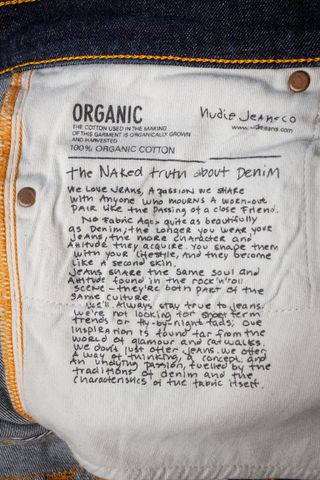 ORGANIC
THE COTTON USED IN THE MAKING
OF THIS GARMENT IS ORGANICALLY GROWN
AND HARVESTED
100% ORGANIC COTTON
Nudie Jeans co
www.nudiejeans.com
the Naked truth about Denim
We Love Jeans, A passion we share
with Anyone who mourns a worn-out
pair like the passing of a close friend.
No fabric Ages quite as beautifully
as Denim; the longer you wear your
jeans, the more character and
Attitude they acquire. You shape them
with your lifestyle, and they become
like a second skin.
Jeans share the same soul and
Attitude found in the rock'n'roll
scene – they're both part of the
same culture.
We'll always stay true to jeans.
we're not looking for short term
trends or fly-by-night fads; our
inspiration is found far from the
world of glamour and catwalks.
we don't just offer jeans. we offer
A way of thinking, a concept, and
An undying passion, fuelled by the
traditions of denim and the
characteristics of the fabric itself.